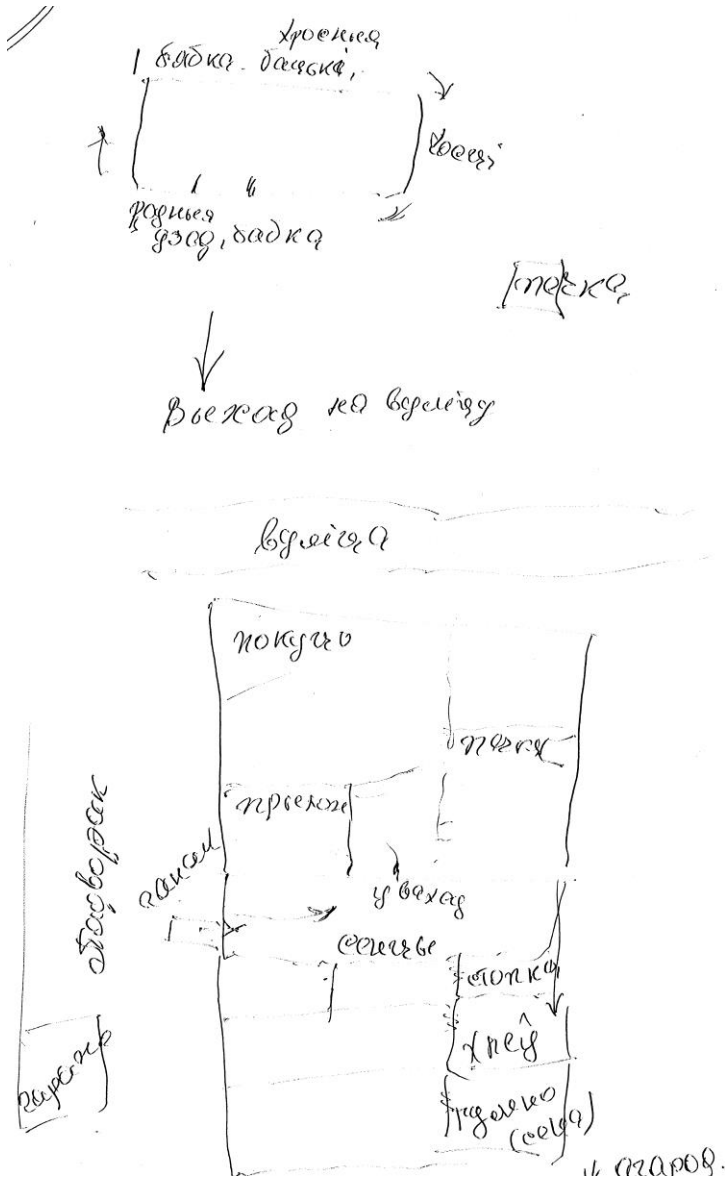 хросныя
бабка. бацькі,
госці
родныя
дзед, бабка
печка
Выхад на вуліцу
вуліца
покуцьо
печка
прыпек
падворак
ганак
уваход
сенцы
стопка
хлеў
гумно
(сена)
гараж
агарод.